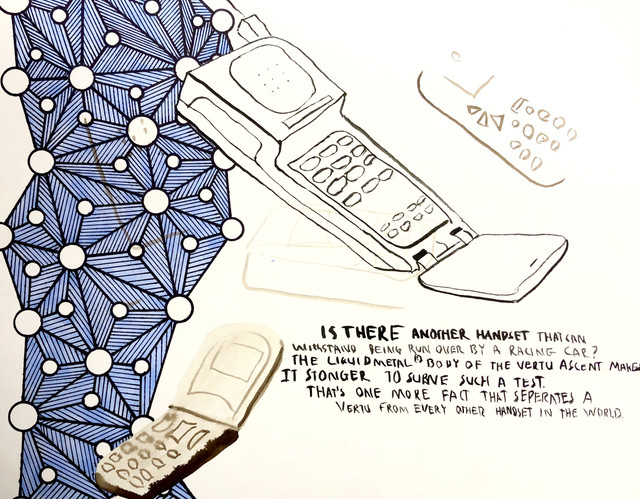 IS THERE ANOTHER HANDSET THAT CAN
WITHSTAND BEING RUN OVER BY A RACING CAR?
THE LIQUIDMETAL® BODY OF THE VERTU ASCENT MAKES
IT STONGER TO SURVE SUCH A TEST.
THAT'S ONE MORE FACT THAT SEPERATES A
VERTU FROM EVERY OTHER HANDSET IN THE WORLD.